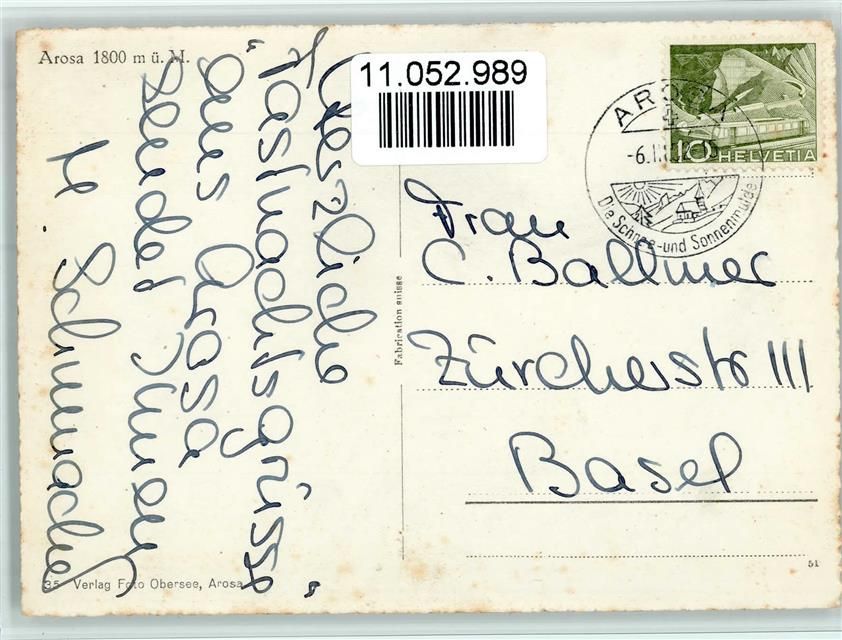 Arosa 1800 m ü. M.
11.052.989
AROSA
-6.II.
Die Schnee-und Sonnenmulde
10 HELVETIA
Herzliche
"Fastnachtsgrüsse"
aus Arosa
sendet Ihnen
H. Schumacher
Fabrication suisse
Frau
C. Ballmer
Zürcherstr 111
Basel
51
35 Verlag Foto Obersee, Arosa